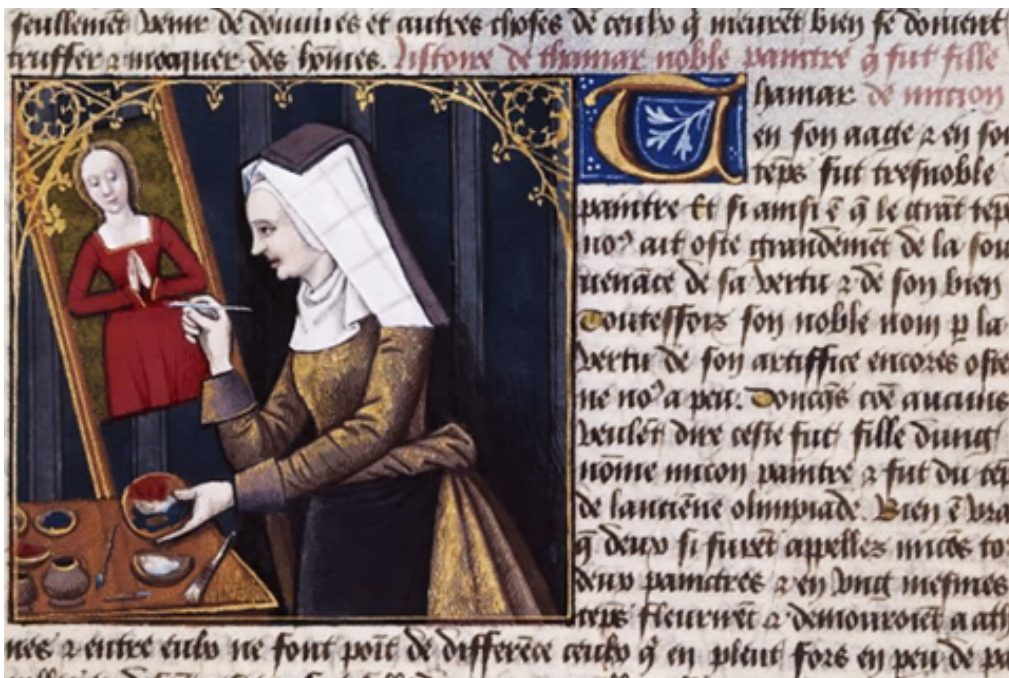 seullemēt venir de douuires et autres choses de ceulx q̄ meurēt bien se doment
truffer ⁊ mocquer des hōmes. Histoire de thamar noble paintre q̄ fut fille
Thamar de micion
en son aage ⁊ en son
tēps fut tresnoble
paintre Et si ainsi ē q̄ le grāt tēp
no⁹ ait oste grandemēt de la sou
uenāce de sa vertu ⁊ de son bien
Toutesfois son noble nom p la
vertu de son artiffice encores oste
ne no⁹ a peu. Doncq̄s cōe aucuns
veulēt dire ceste fut fille dung
nōme micon paintre ⁊ fut du tēp
de lanciēne olimpiade. Bien ē vra
q̄ deux si furēt appelles micōs to
deux paintres ⁊ en vng mesmes
tēps fleurirēt ⁊ demouroiēt a ath
nes ⁊ entre eulx ne font poīt de differēce ceulx q̄ en plent fors en peu de pa